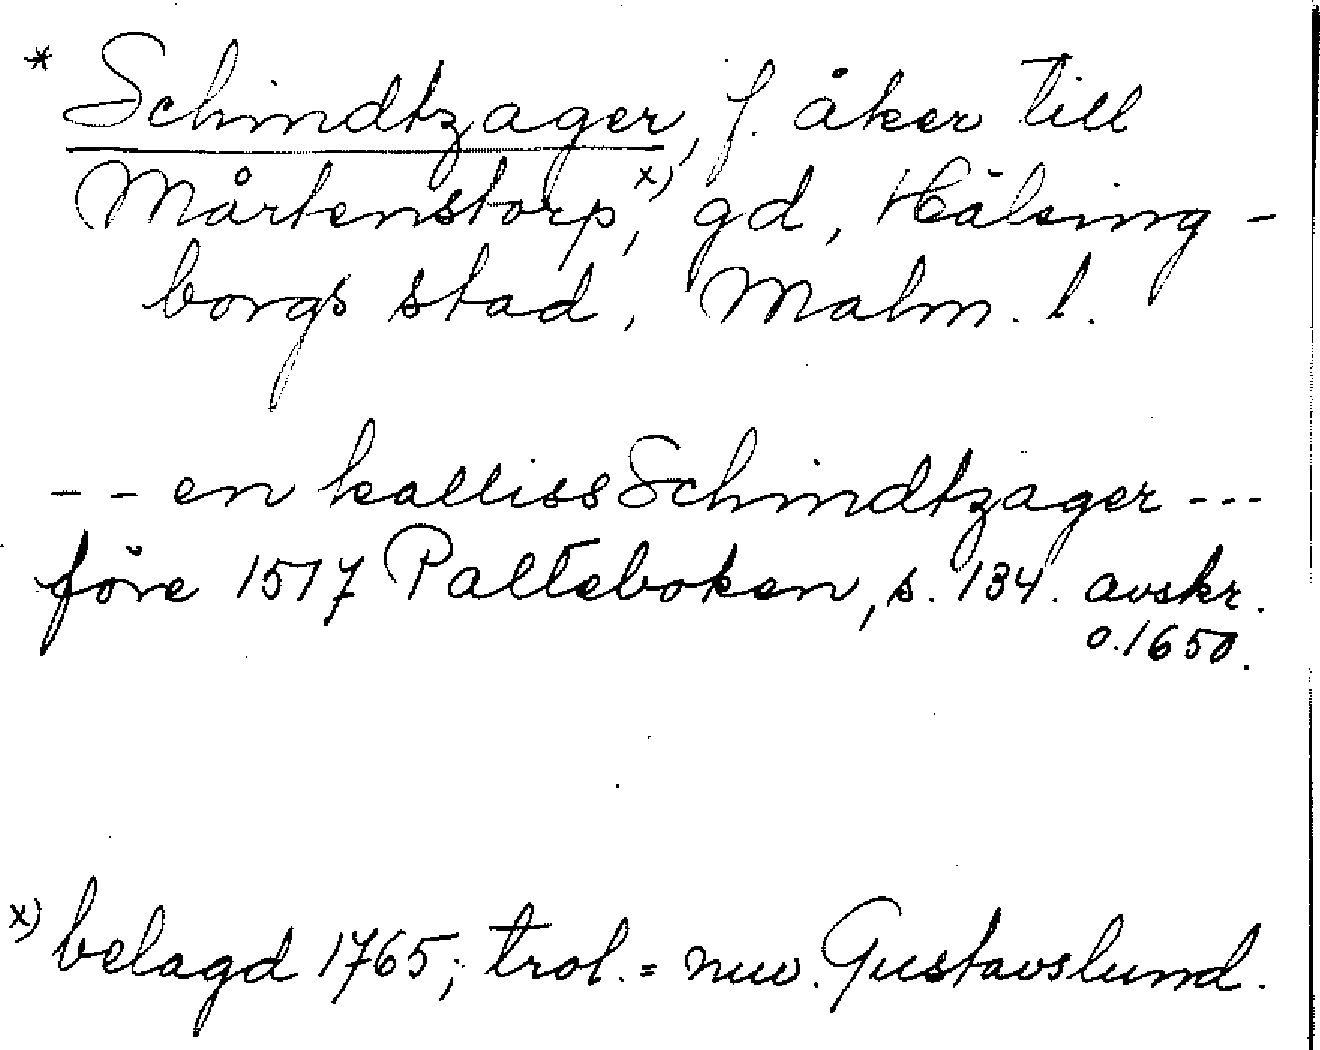 * Schindtzager, f. åker till
Mårtenstorp,ˣ⁾ gd, Hälsing-
borgs stad, Malm. l.
-- en kalliss Schindtzager ---
före 1517 Palteboken, s. 134. avskr.
o. 1650.
x) belagd 1765; trol. = nuv. Gustavslund.